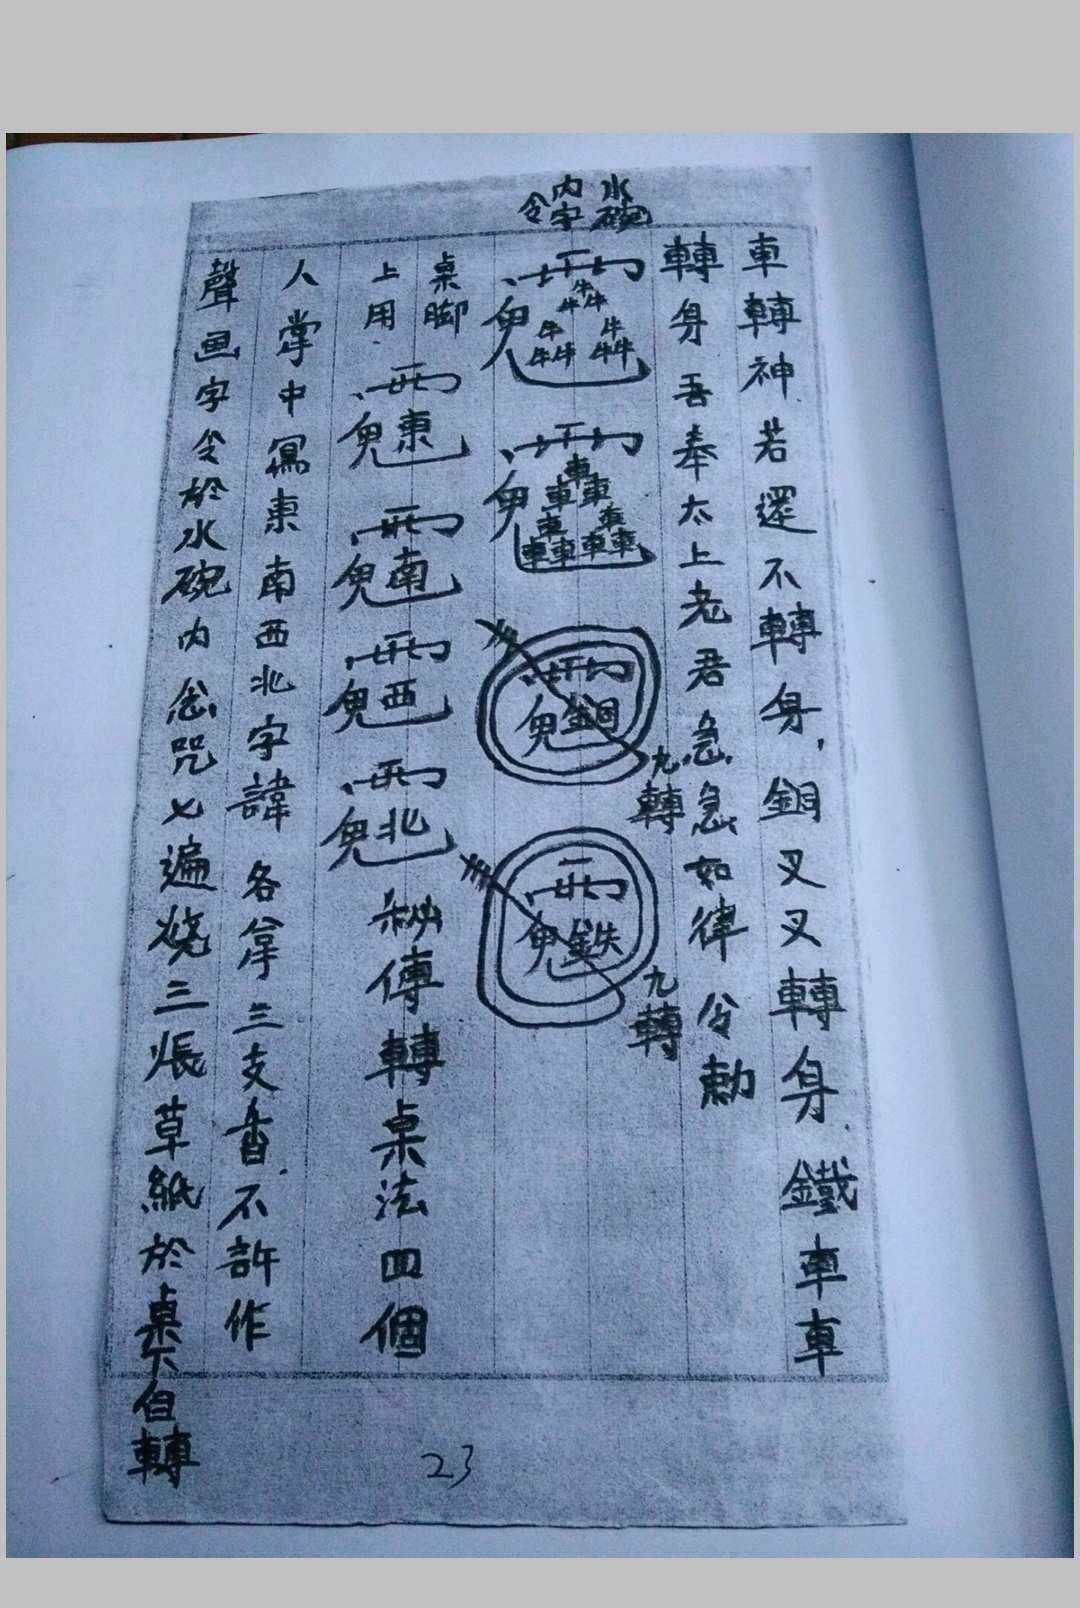 車轉神若還不轉身，銅叉叉轉身．鐵車車
轉身吾奉太上老君急急如律令勅
水碗
内字
令
九轉
九轉
桌脚
上用
秘傳轉桌法四個
人掌中寫東南西北字諱各拿三支香．不許作
聲画字令於水碗内念咒七遍燒三張草紙於桌下自轉
23